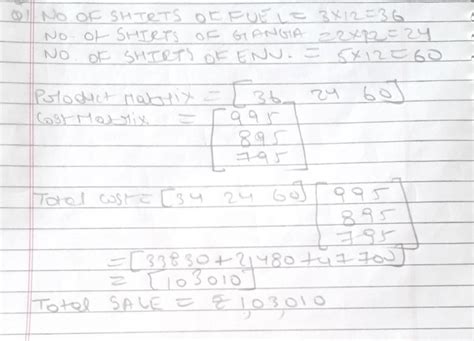 Q1 NO OF SHIRTS OF FUEL = 3x12=36
NO. OF SHIRTS OF GIANGIA = 2x12=24
NO. OF SHIRTS OF ENV. = 5x12=60
Product Matrix = [36 24 60]
Cost Matrix = [995
895
795]
Total cost = [34 24 60] [995
895
795]
= [33830+21480+47700]
= [103010]
Total SALE = ₹1,03,010